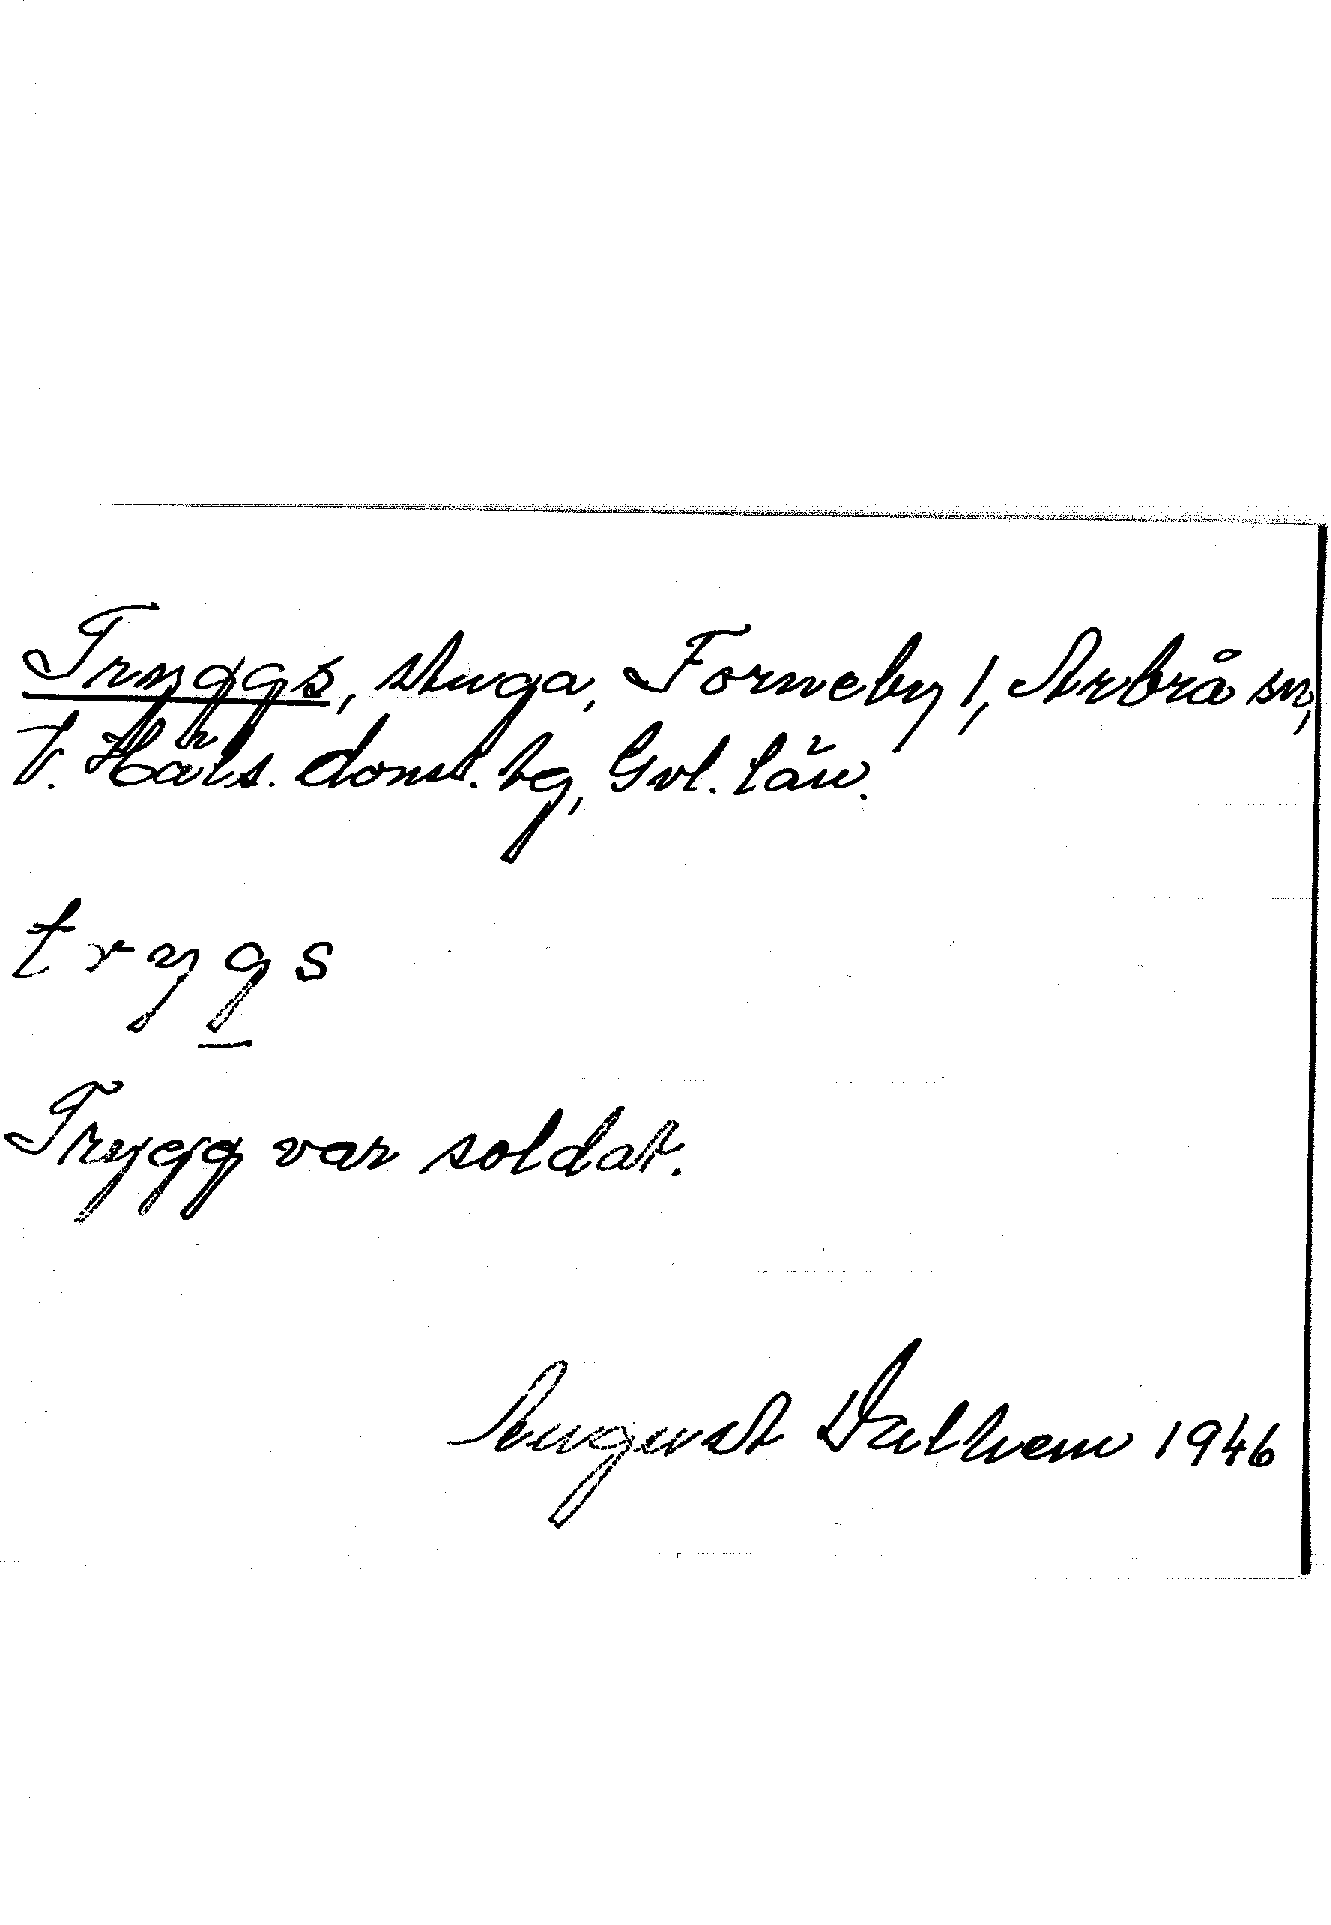 Tryggs, stuga, Forneby 1, Arbrå sn,
v. Häls. doms. tg, Gvl. län.
trygs
Trygg var soldat.
August Dalhem 1946